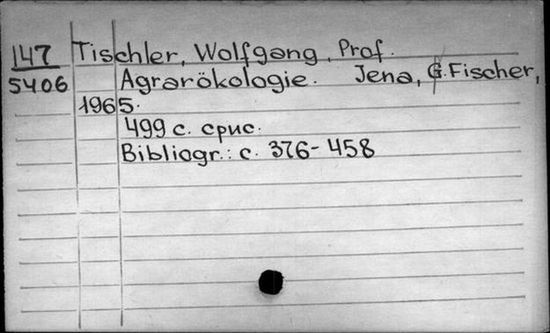 147 Tischler, Wolfgang, Prof.
5406 Agrarökologie. Jena, G. Fischer,
1965.
499 с. срис.
Bibliogr.: с. 376-458